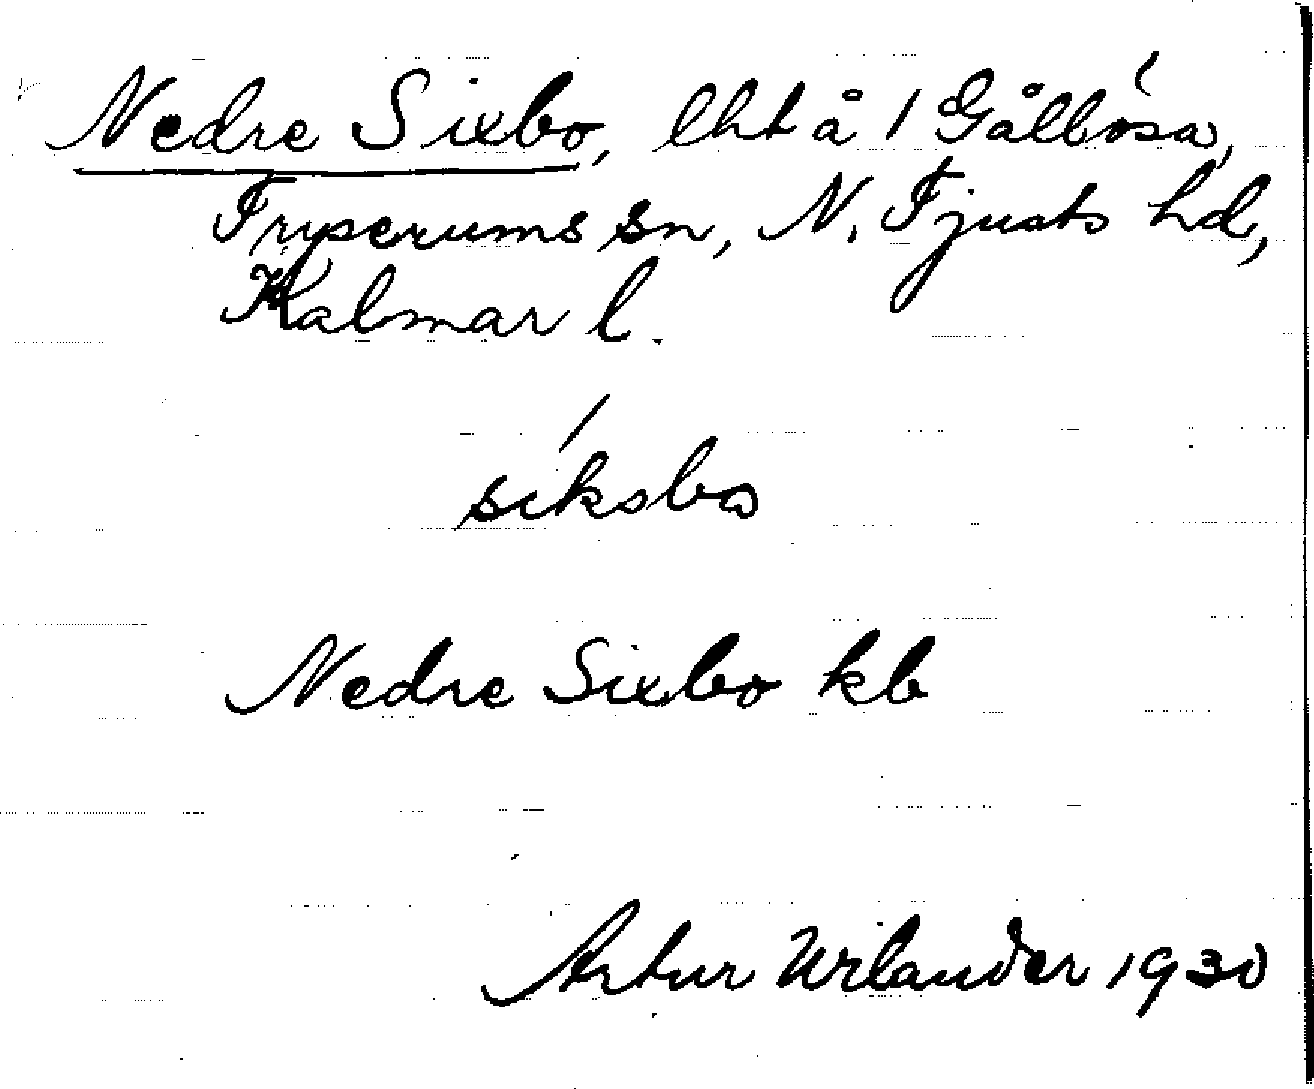 Nedre Sixbo, lht å 1 Gålbósa,
Tryserums sn, N. Tjusts hd,
Kalmar l.
síksbo
Nedre Sixbo kb
Artur Wilander 1930